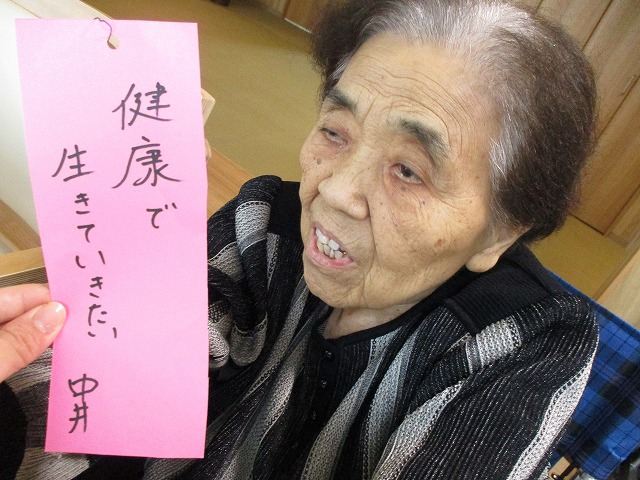 健康で
生きていきたい
中井